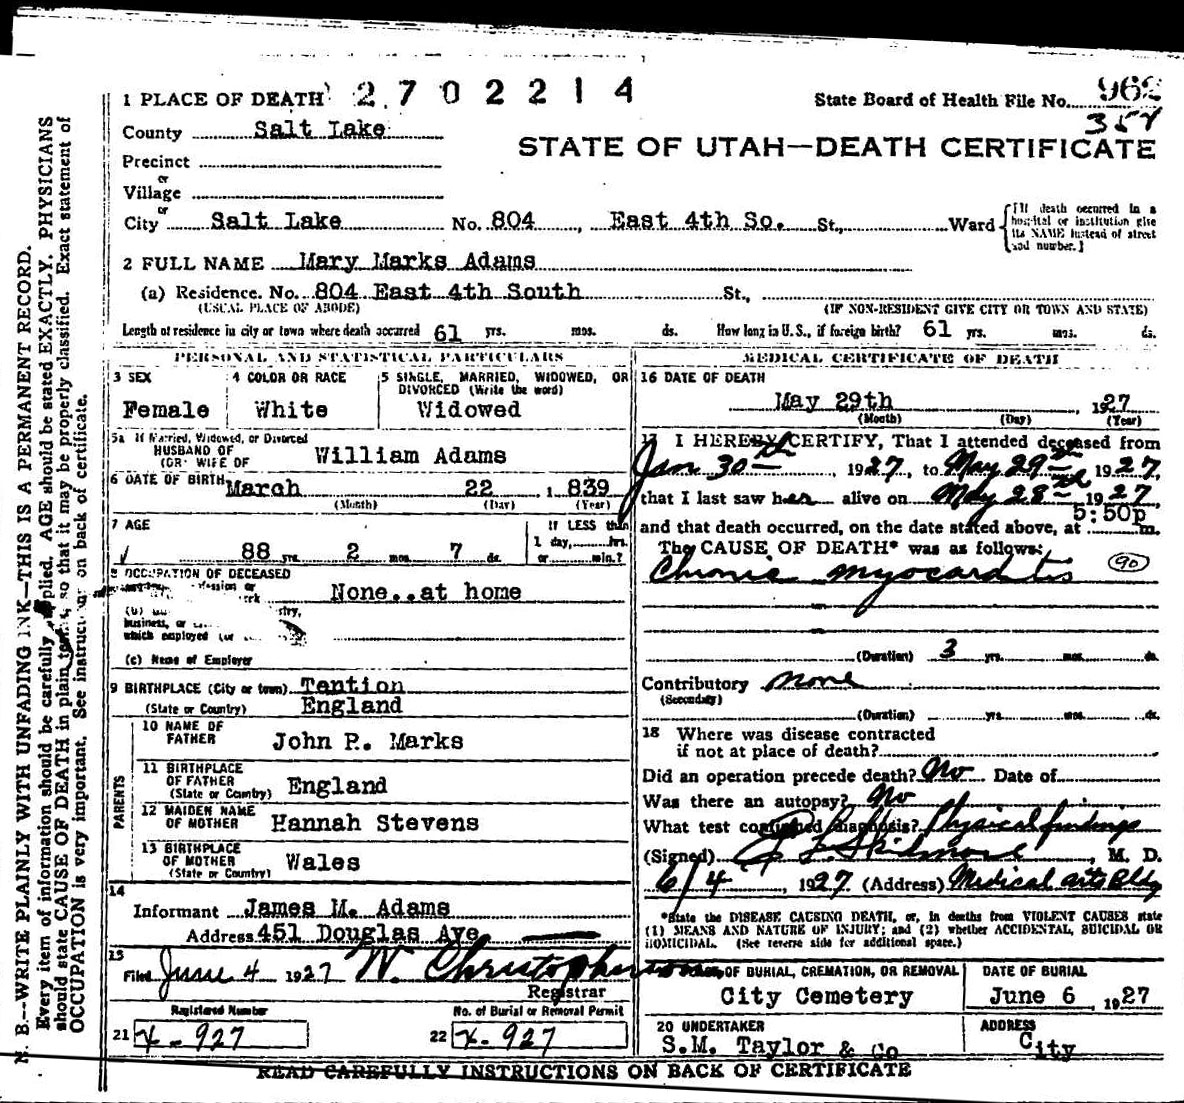 2702214
1 PLACE OF DEATH
State Board of Health File No. 962
358
County Salt Lake
STATE OF UTAH—DEATH CERTIFICATE
Precinct
or
Village
or
City Salt Lake No. 804 East 4th So. St., Ward {[If death occurred in a hospital or institution give its NAME instead of street and number.]
2 FULL NAME Mary Marks Adams
(a) Residence. No. 804 East 4th South St.,
(USUAL PLACE OF ABODE) (IF NON-RESIDENT GIVE CITY OR TOWN AND STATE)
Length of residence in city or town where death occurred 61 yrs. mos. ds. How long in U.S., if foreign birth? 61 yrs. mos. ds.
PERSONAL AND STATISTICAL PARTICULARS
3 SEX
Female
4 COLOR OR RACE
White
5 SINGLE, MARRIED, WIDOWED, OR
DIVORCED (Write the word)
Widowed
5a If Married, Widowed, or Divorced
HUSBAND OF
(OR) WIFE OF William Adams
6 DATE OF BIRTH March 22 1839
(Month) (Day) (Year)
7 AGE
88 yrs. 2 mos. 7 ds.
If LESS than
1 day, hrs.
or min.?
8 OCCUPATION OF DECEASED
None..at home
business, or
which employed (or
(c) Name of Employer
9 BIRTHPLACE (City or town) Tention
(State or Country) England
PARENTS
10 NAME OF
FATHER John P. Marks
11 BIRTHPLACE
OF FATHER
(State or Country) England
12 MAIDEN NAME
OF MOTHER Hannah Stevens
13 BIRTHPLACE
OF MOTHER
(State or Country) Wales
14
Informant James M. Adams
Address 451 Douglas Ave
15
Filed June 4 1927 W. Christopherson
Registrar
Registered Number
21 X-927
No. of Burial or Removal Permit
22 X-927
MEDICAL CERTIFICATE OF DEATH
16 DATE OF DEATH
May 29th, 1927
(Month) (Day) (Year)
17 I HEREBY CERTIFY, That I attended deceased from
Jan 30th, 1927, to May 29th 1927,
that I last saw her alive on May 28th 1927
and that death occurred, on the date stated above, at 5:50p m.
The CAUSE OF DEATH* was as follows:
Chronic myocarditis 90
(Duration) 3 yrs. mos. ds.
Contributory none
(Secondary)
(Duration) yrs. mos. ds.
18 Where was disease contracted
if not at place of death?
Did an operation precede death? No Date of
Was there an autopsy? No
What test confirmed diagnosis? Physical findings
(Signed) Skidmore, M. D.
6/4, 1927 (Address) Medical Arts Bldg
*State the DISEASE CAUSING DEATH, or, in deaths from VIOLENT CAUSES state
(1) MEANS AND NATURE OF INJURY; and (2) whether ACCIDENTAL, SUICIDAL OR
HOMICIDAL. (See reverse side for additional space.)
OF BURIAL, CREMATION, OR REMOVAL
City Cemetery
DATE OF BURIAL
June 6, 1927
20 UNDERTAKER
S.M. Taylor & Co
ADDRESS
City
READ CAREFULLY INSTRUCTIONS ON BACK OF CERTIFICATE
N. B.—WRITE PLAINLY WITH UNFADING INK—THIS IS A PERMANENT RECORD.
Every item of information should be carefully supplied. AGE should be stated EXACTLY. PHYSICIANS
should state CAUSE OF DEATH in plain terms, so that it may be properly classified. Exact statement of
OCCUPATION is very important. See instructions on back of certificate.